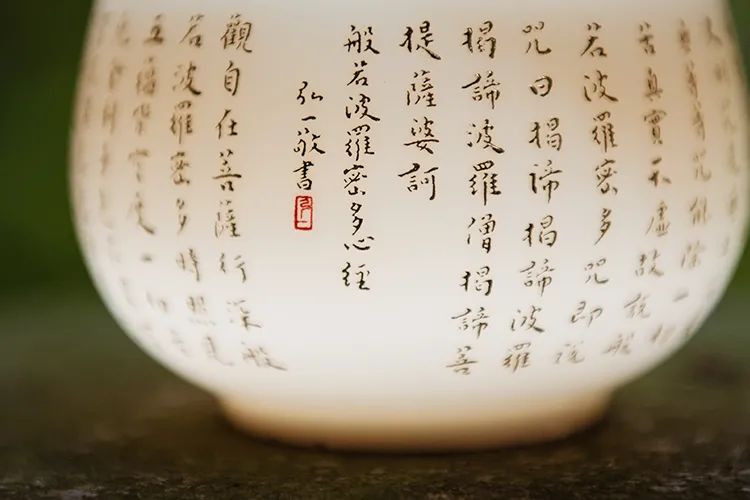 等等咒能除一切
苦真實不虛故說般
若波羅密多咒即說
咒曰揭諦揭諦波羅
揭諦波羅僧揭諦菩
提薩婆訶
般若波羅密多心經
弘一敬書
觀自在菩薩行深般
若波羅密多時照見
五蘊皆空度一切